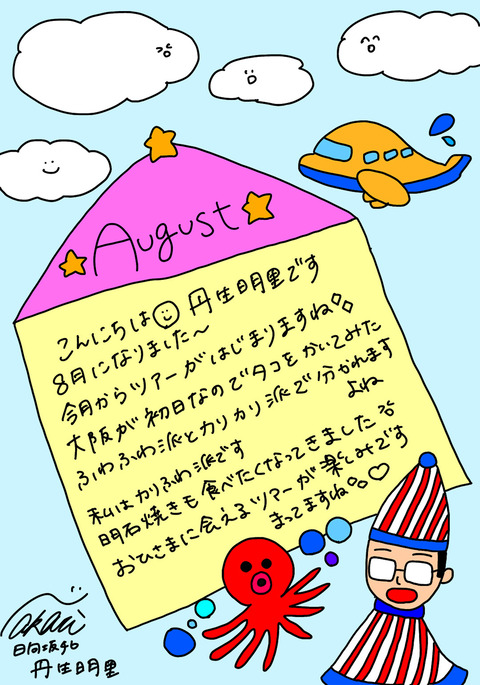 August
こんにちは 丹生明里です
8月になりました〜
今月からツアーがはじまりますね
大阪が初日なのでタコをかいてみた
ふわふわ派とカリカリ派で分かれます
よね
私はかりふわ派です
明石焼きも食べたくなってきました
おひさまに会えるツアーが楽しみです
まってますね♡
日向坂46
丹生明里